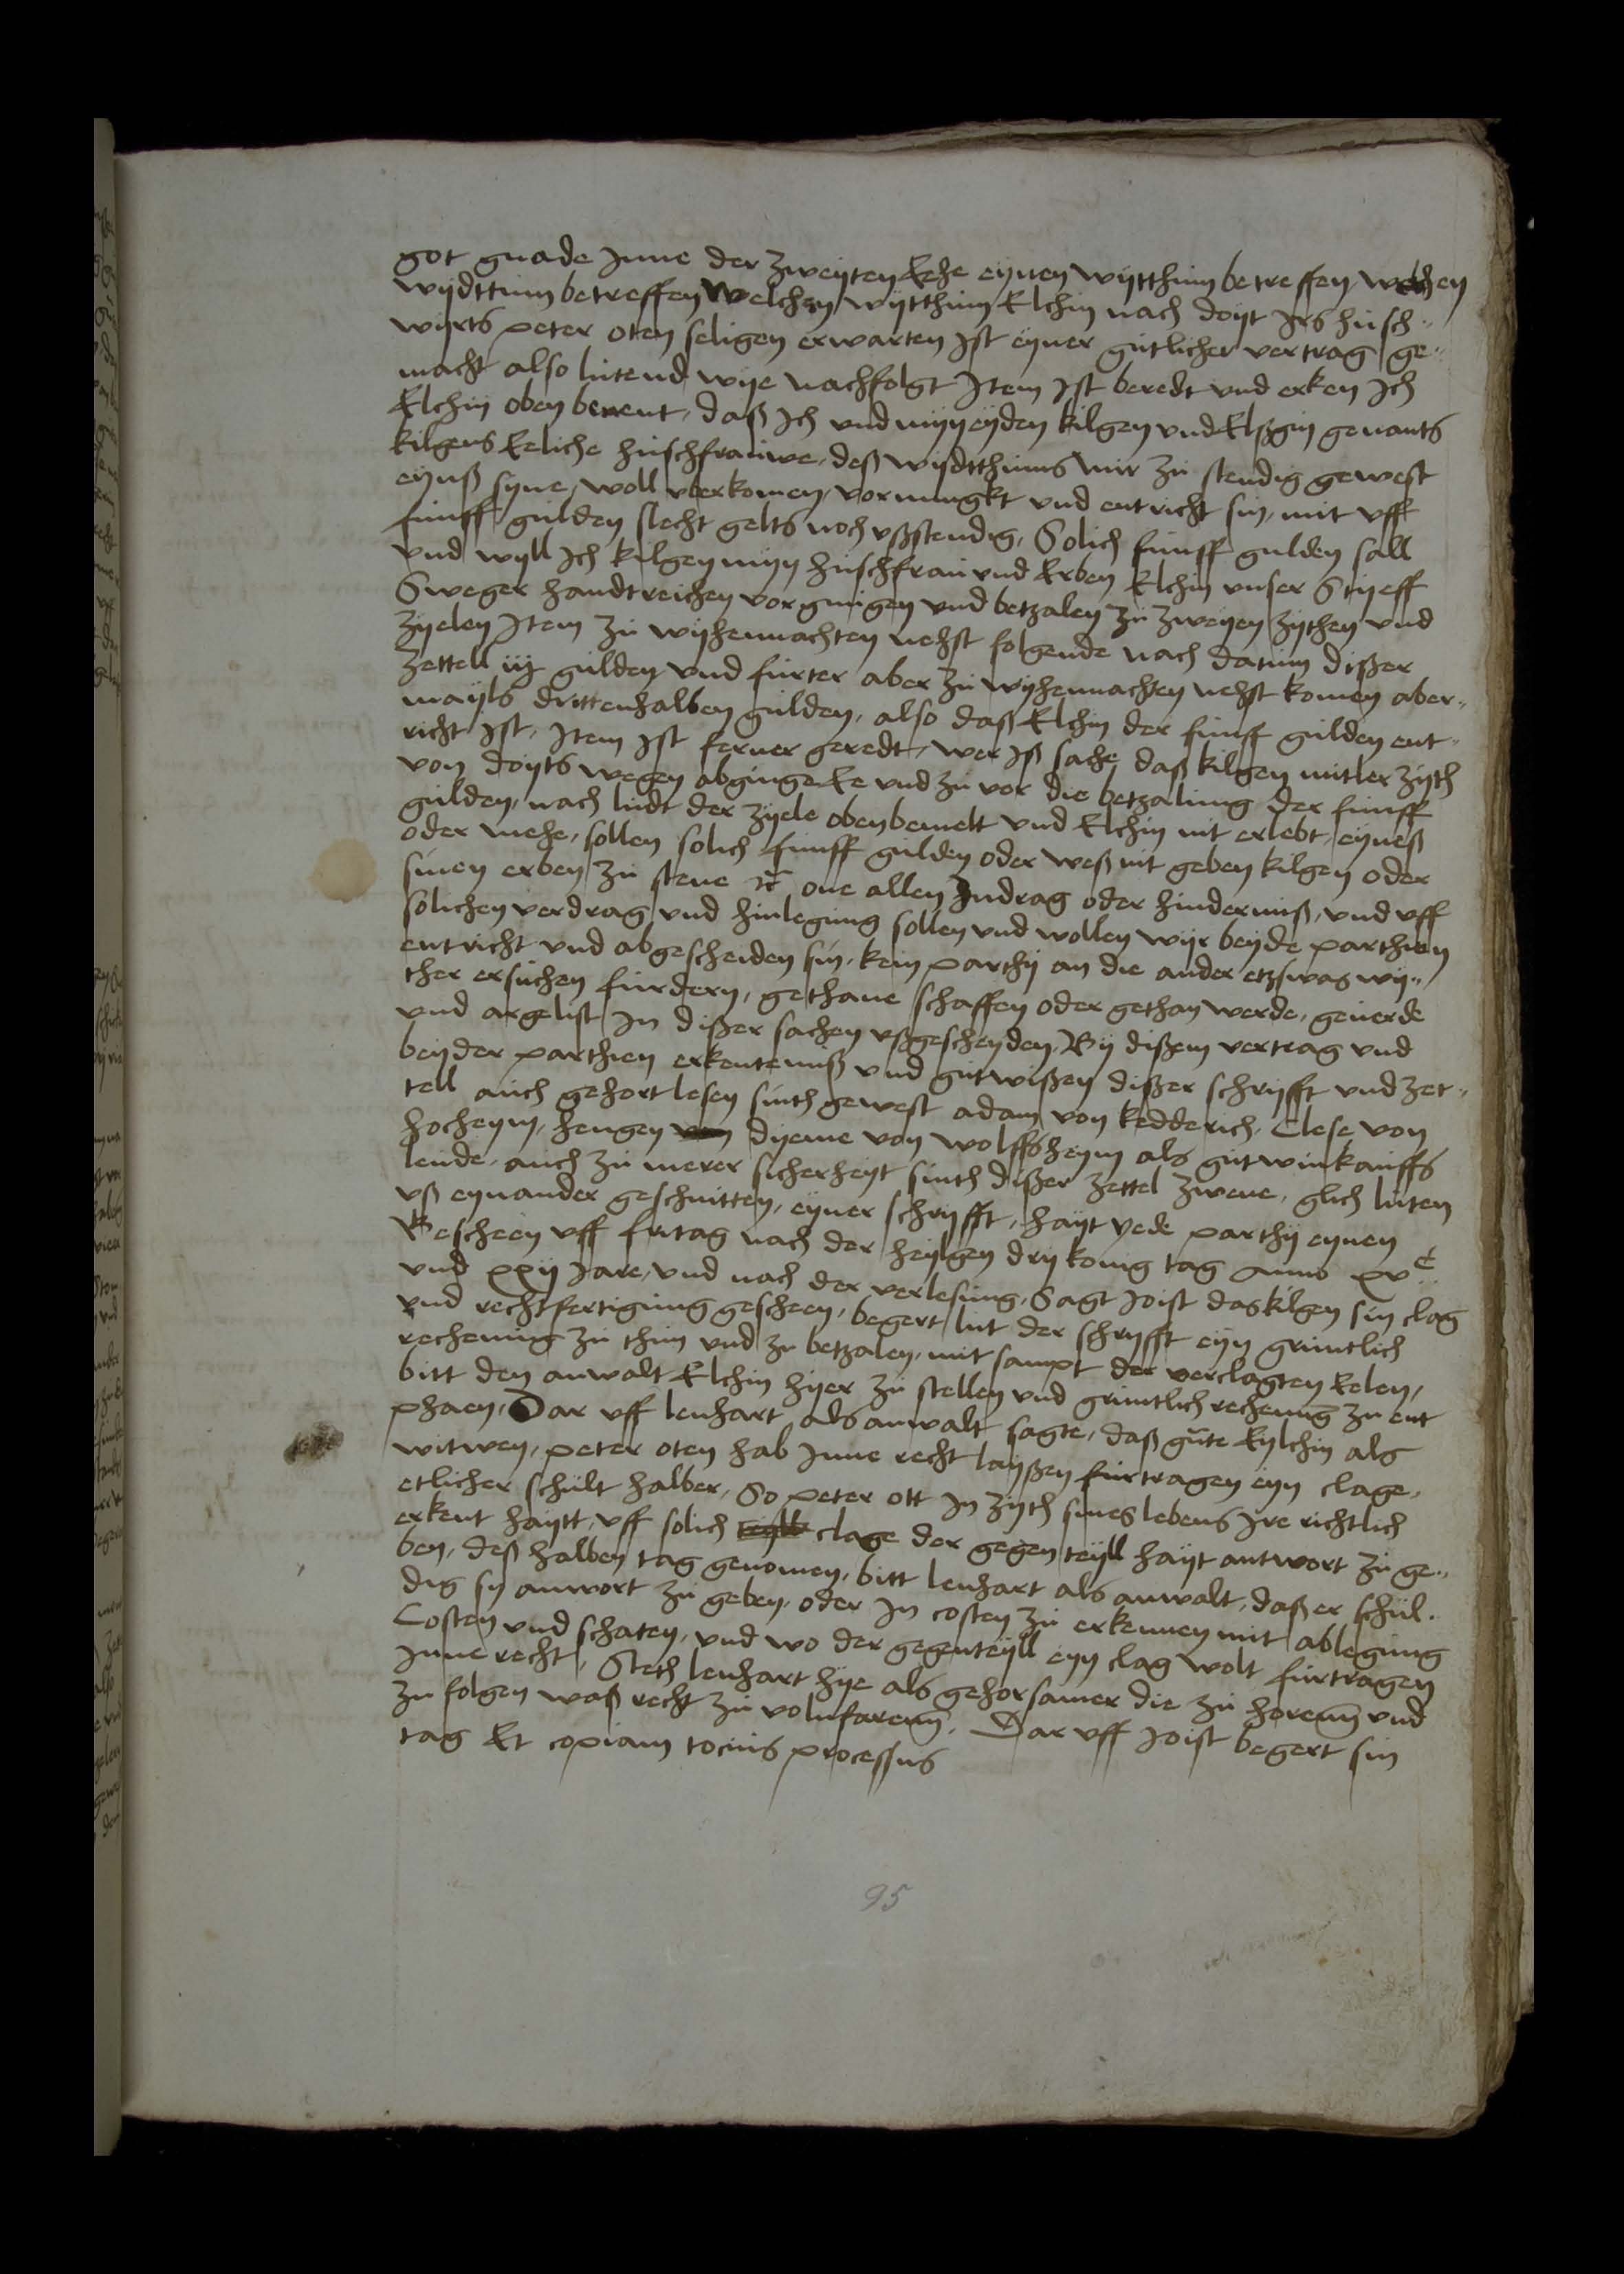 got gnade Inne der zweyten Eehe eynen wytthum betreffen, welchen
wydttum betreffen Welchen wytthum Elchin nach doyt irs husch¬
wyrts peter oten seligen erwarten Ist eyner gutlicher vertrag ge¬
macht also lutend wye nachfolgt Item Ist beredt vnd erken Ich
Elchin oben benent, daß Ich vnd myn eyden kilgen vnd Elßgin genants
kilgens Eeliche huschfrauwe, deß wydtthums mir zu stendig gewest
eynß syne, woll vberkomen, vornungkt vnd entricht sin, mit vff
funff gulden slecht gelts noch vßstendig, Solich funff gulden sall
vnd wyll Ich kilgen myn huschfrau vnd Erben Elchin vnser Styeff
Sweger handtreichen vorgnugen vnd betzalen zu zweyen zythen vnd
zyelen Item zu wyhennachten nehst folgende nach datum dißer
zettell iij gulden vnd furter aber zu wyhennachten nehst komen aber¬
mayls drittenhalben gulden, also daß Elchin der funff gulden ent¬
richt Ist, Item Ist ferner geredt, wer iß sache, daß kilgen mitler zyth
von doyts wegen abginge Ee vnd zu vor die betzalung der funff
gulden, nach ludt der zyele obenbemelt vnd Elchin nit erlebt, eyneß
oder mehe, sollen solich funff gulden oder weß nit geben kilgen oder
sinen erben zu stene one allen Indrag oder hindernuß, vnd vff
solichen verdrag vnd hinlegung sollen vnd wollen wyr beyde parthien
entricht vnd abgescheiden sin, kein parthy an die ander etzwas wy¬
ther ersuchen furdern, gethane schaffen oder gethan werde, geuerde
vnd argelist In dißer sachen vßgescheyden, By dißem vertrag vnd
beyder parthien erkentenuß vnd gutwißen dißer schryfft vnd zet¬
tell auch gehort lesen sinth gewest adam von kedderich, Clese von
hocheym, hengen dyeme von wolffsheym als gut winkauffs
leude, auch zu merer sicherheyt sinth dißer zettel zwene, glich luten
vß eynander geschnitten, eyner schryfft, hayt yede parthy eynen
Gescheen vff fritag nach der heylgen dry konig tag anno xvᶜ
vnd xxij Jare, vnd nach der verlesung, Sagt Joist das kilgen sin clag
vnd rechtfertigung gescheen, begert lut der schryfft eyn gruntlich
rechenung zu thun vnd zu betzalen, mit sampt der verclagten Eelen,
bitt den anwalt Elchin hyer zu stellen vnd gruntlich rechenung zu ent
phaen, Dar vff lenhart als anwalt sagte, daß gute Eylchin als
witwen, peter oten hab Inne recht layßen furtragen eyn clage,
etlicher schult halber, So peter ott In zyth sines lebens Ire richtlich
erkent haytt, vff solich clage der gegenteyll hayt antwort zu ge¬
ben, deß halben tag genomen, bitt lenhart als anwalt, daß er schul¬
dig sy anwort zu geben, oder In costen zu erkennen mit ablegung
Costen vnd schaten, vnd wo der gegenteyll eyn clag wolt furtragen
Inne recht, Steth lenhart hye als gehorsamer die zu horenn vnd
zu folgen waß recht zu volnfarenn, Dar vff Joist begert sin
tag Et copiam tocius processus
95